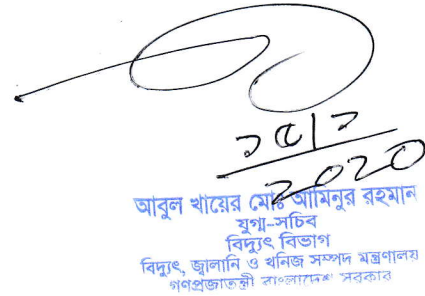 ১৫/২
২০২০
আবুল খায়ের মোঃ আমিনুর রহমান
যুগ্ম-সচিব
বিদ্যুৎ বিভাগ
বিদ্যুৎ, জ্বালানি ও খনিজ সম্পদ মন্ত্রণালয়
গণপ্রজাতন্ত্রী বাংলাদেশ সরকার